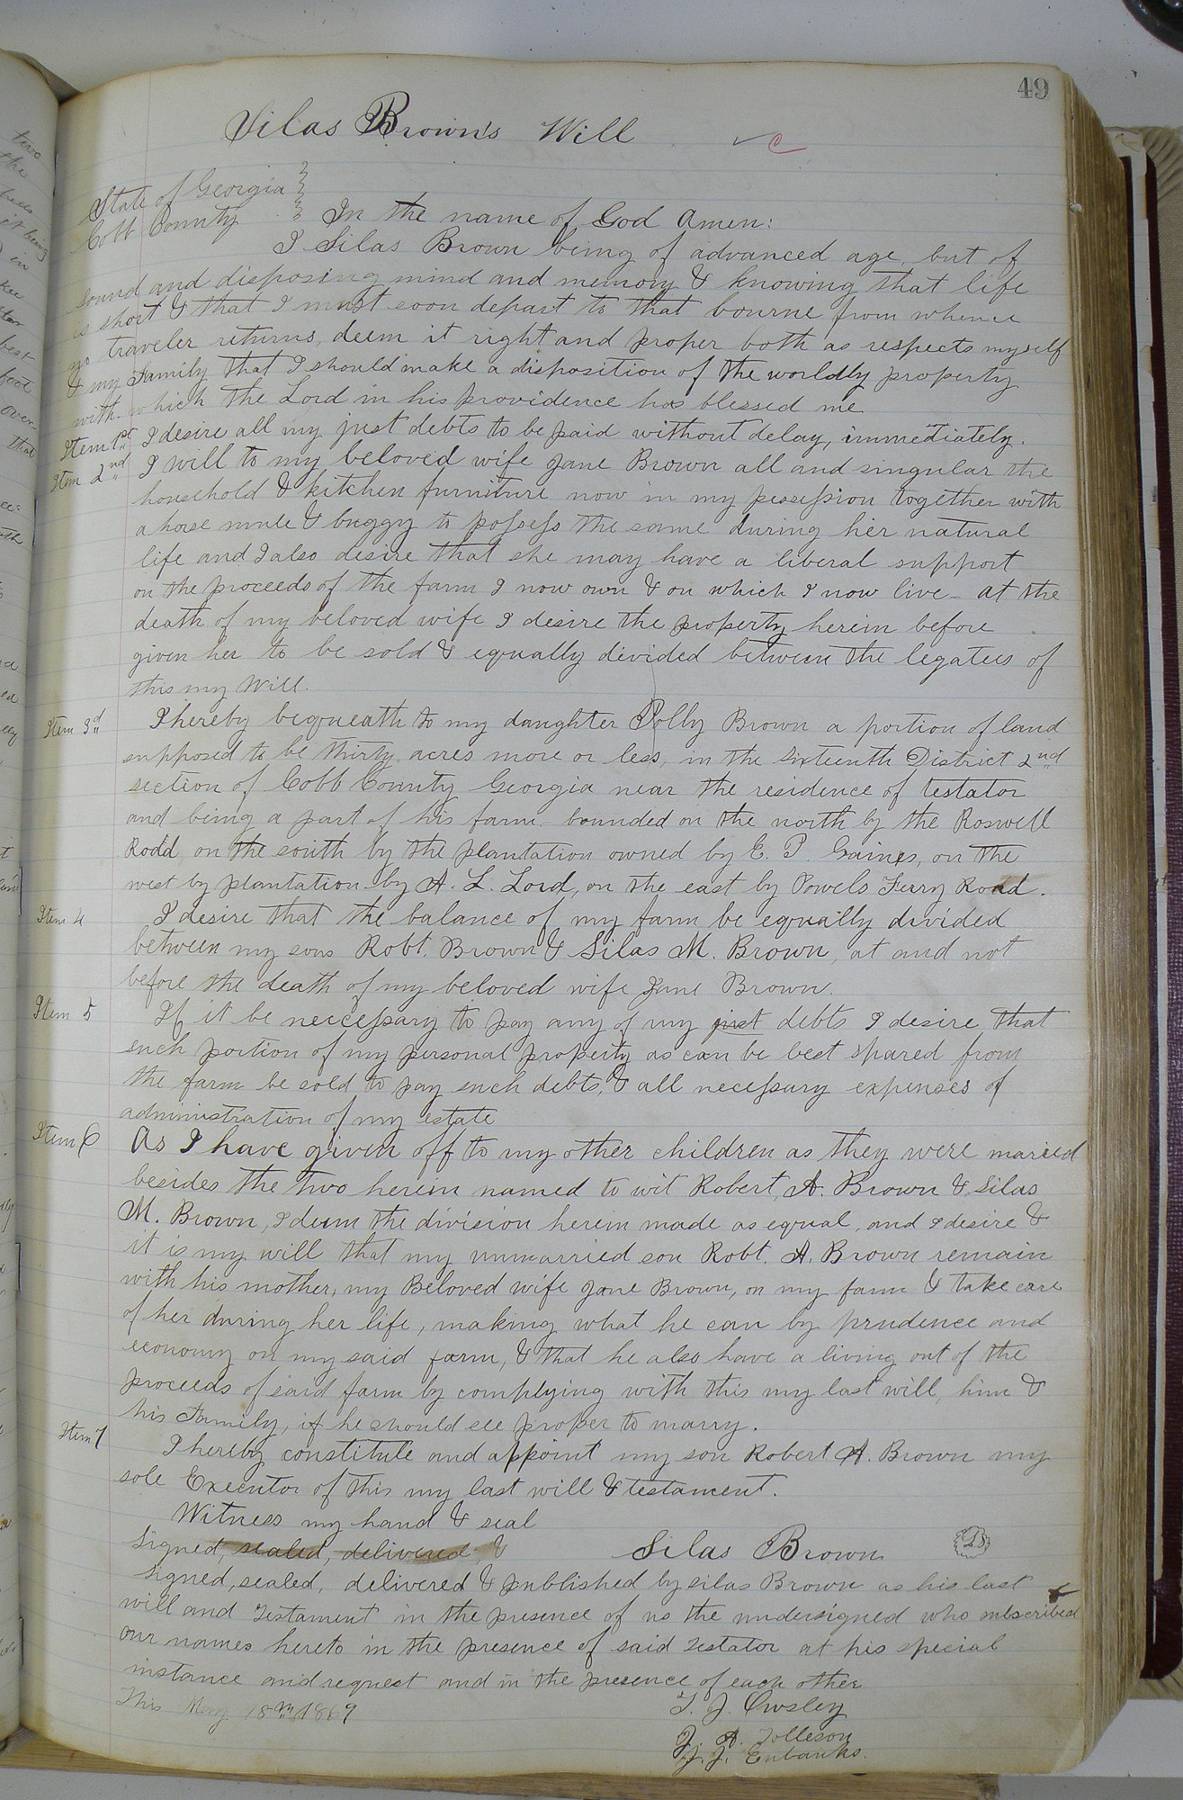 49
Silas Brown's Will
State of Georgia
Cobb County
In the name of God Amen:
I Silas Brown being of advanced age, but of
sound and disposing mind and memory & knowing that life
is short & that I must soon depart to that bourne from whence
no traveler returns, deem it right and proper both as respects myself
& my Family that I should make a disposition of the worldly property
with which the Lord in his providence has blessed me
Item 1st I desire all my just debts to be paid without delay, immediately.
Item 2nd I will to my beloved wife Jane Brown all and singular the
household & kitchen furniture now in my possession together with
a horse mule & buggy to possess the same during her natural
life and I also desire that she may have a liberal support
on the proceeds of the farm I now own & on which I now live - at the
death of my beloved wife I desire the property herein before
given her to be sold & equally divided between the legatees of
this my Will.
Item 3d I hereby bequeath to my daughter Polly Brown a portion of land
supposed to be thirty acres more or less, in the Sixteenth District 2nd
section of Cobb County Georgia near the residence of testator
and being a part of his farm bounded on the north by the Roswell
Rodd on the south by the plantation owned by E. P. Gaines, on the
west by plantation by A. L. Lord, on the east by Powels Ferry Road.
Item 4 I desire that the balance of my farm be equally divided
between my sons Robt. Brown & Silas M. Brown, at and not
before the death of my beloved wife Jane Brown.
Item 5 If it be neccessary to pay any of my just debts I desire that
such portion of my personal property as can be best spared from
the farm be sold to pay such debts, & all necessary expenses of
administration of my estate
Item 6 As I have given off to my other children as they were maried
besides the two herein named to wit Robert A. Brown & Silas
M. Brown, I deem the division herein made as equal, and I desire &
it is my will that my unmarried son Robt. A. Brown remain
with his mother, my Beloved wife Jane Brown, on my farm & take care
of her during her life, making what he can by prudence and
economy on my said farm, & that he also have a living out of the
proceeds of said farm by complying with this my last will, him &
his Family, if he should see proper to marry.
Item 7 I hereby constitute and appoint my son Robert A. Brown my
sole Executor of this my last will & testament.
Witness my hand & seal
Signed, sealed, delivered, & Silas Brown
Signed, sealed, delivered & published by Silas Brown as his last
will and Testament in the presence of us the undersigned who subscribed
our names hereto in the presence of said Testator at his special
instance and request and in the presence of each other
This May 18th 1869 T. J. Owsley
J. A. Tolleson
J. J. Eubanks.